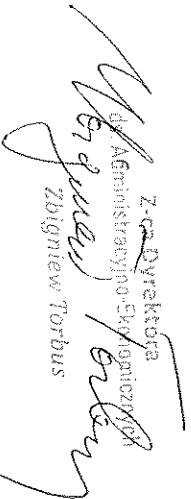 Z-ca Dyrektora
ds. Administracyjno-Ekonomicznych
Zbigniew Torbus